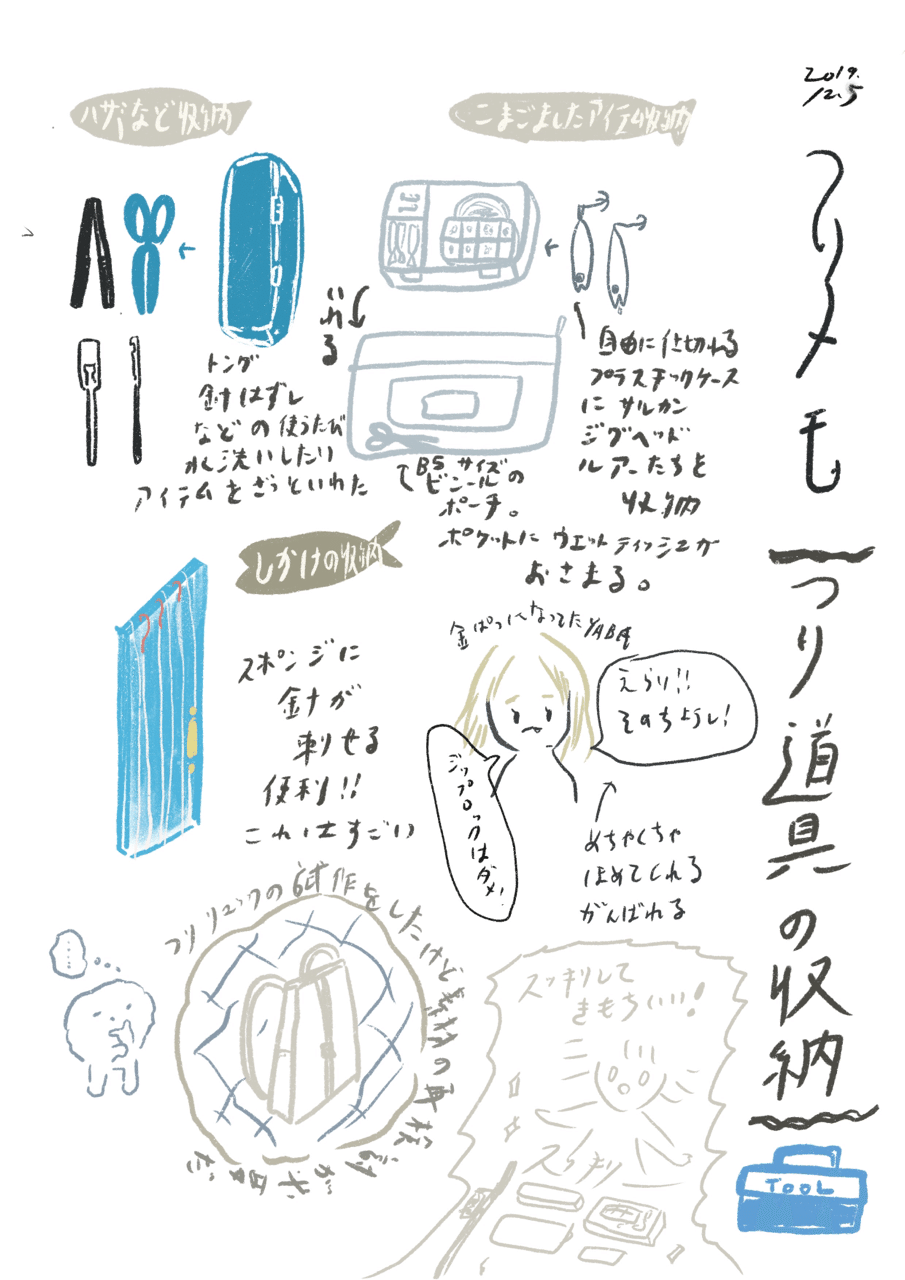 2019.
12.5
つりメモ
つり道具の収納
こまごましたアイテム収納
自由に仕切れる
プラスチックケース
に サルカン
ジグヘッド
ルアーたちを
収納
いれる
B5 サイズ
ビニールの
ポーチ。
ポケットに ウェットティッシュが
おさまる。
ハサミなど収納
トング
針はずし
などの使うたび
水洗いしたい
アイテムをざっといれた
しかけの収納
スポンジに
針が
刺せる
便利!!
これはすごい
金ぱつになってた YABA
えらい!!
そのちょうし!
ジップロックはダメ!
めちゃくちゃ
ほめてくれる
がんばれる
つりリュックの試作をしたけど素材の再検討が必要だ
スッキリして
きもちいい!
スッキリ
TOOL